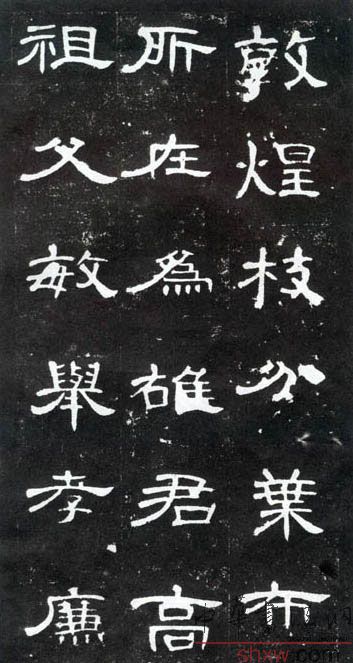 敦煌枝分葉布
所在爲雄君高
祖父敏舉孝廉
shxw.com